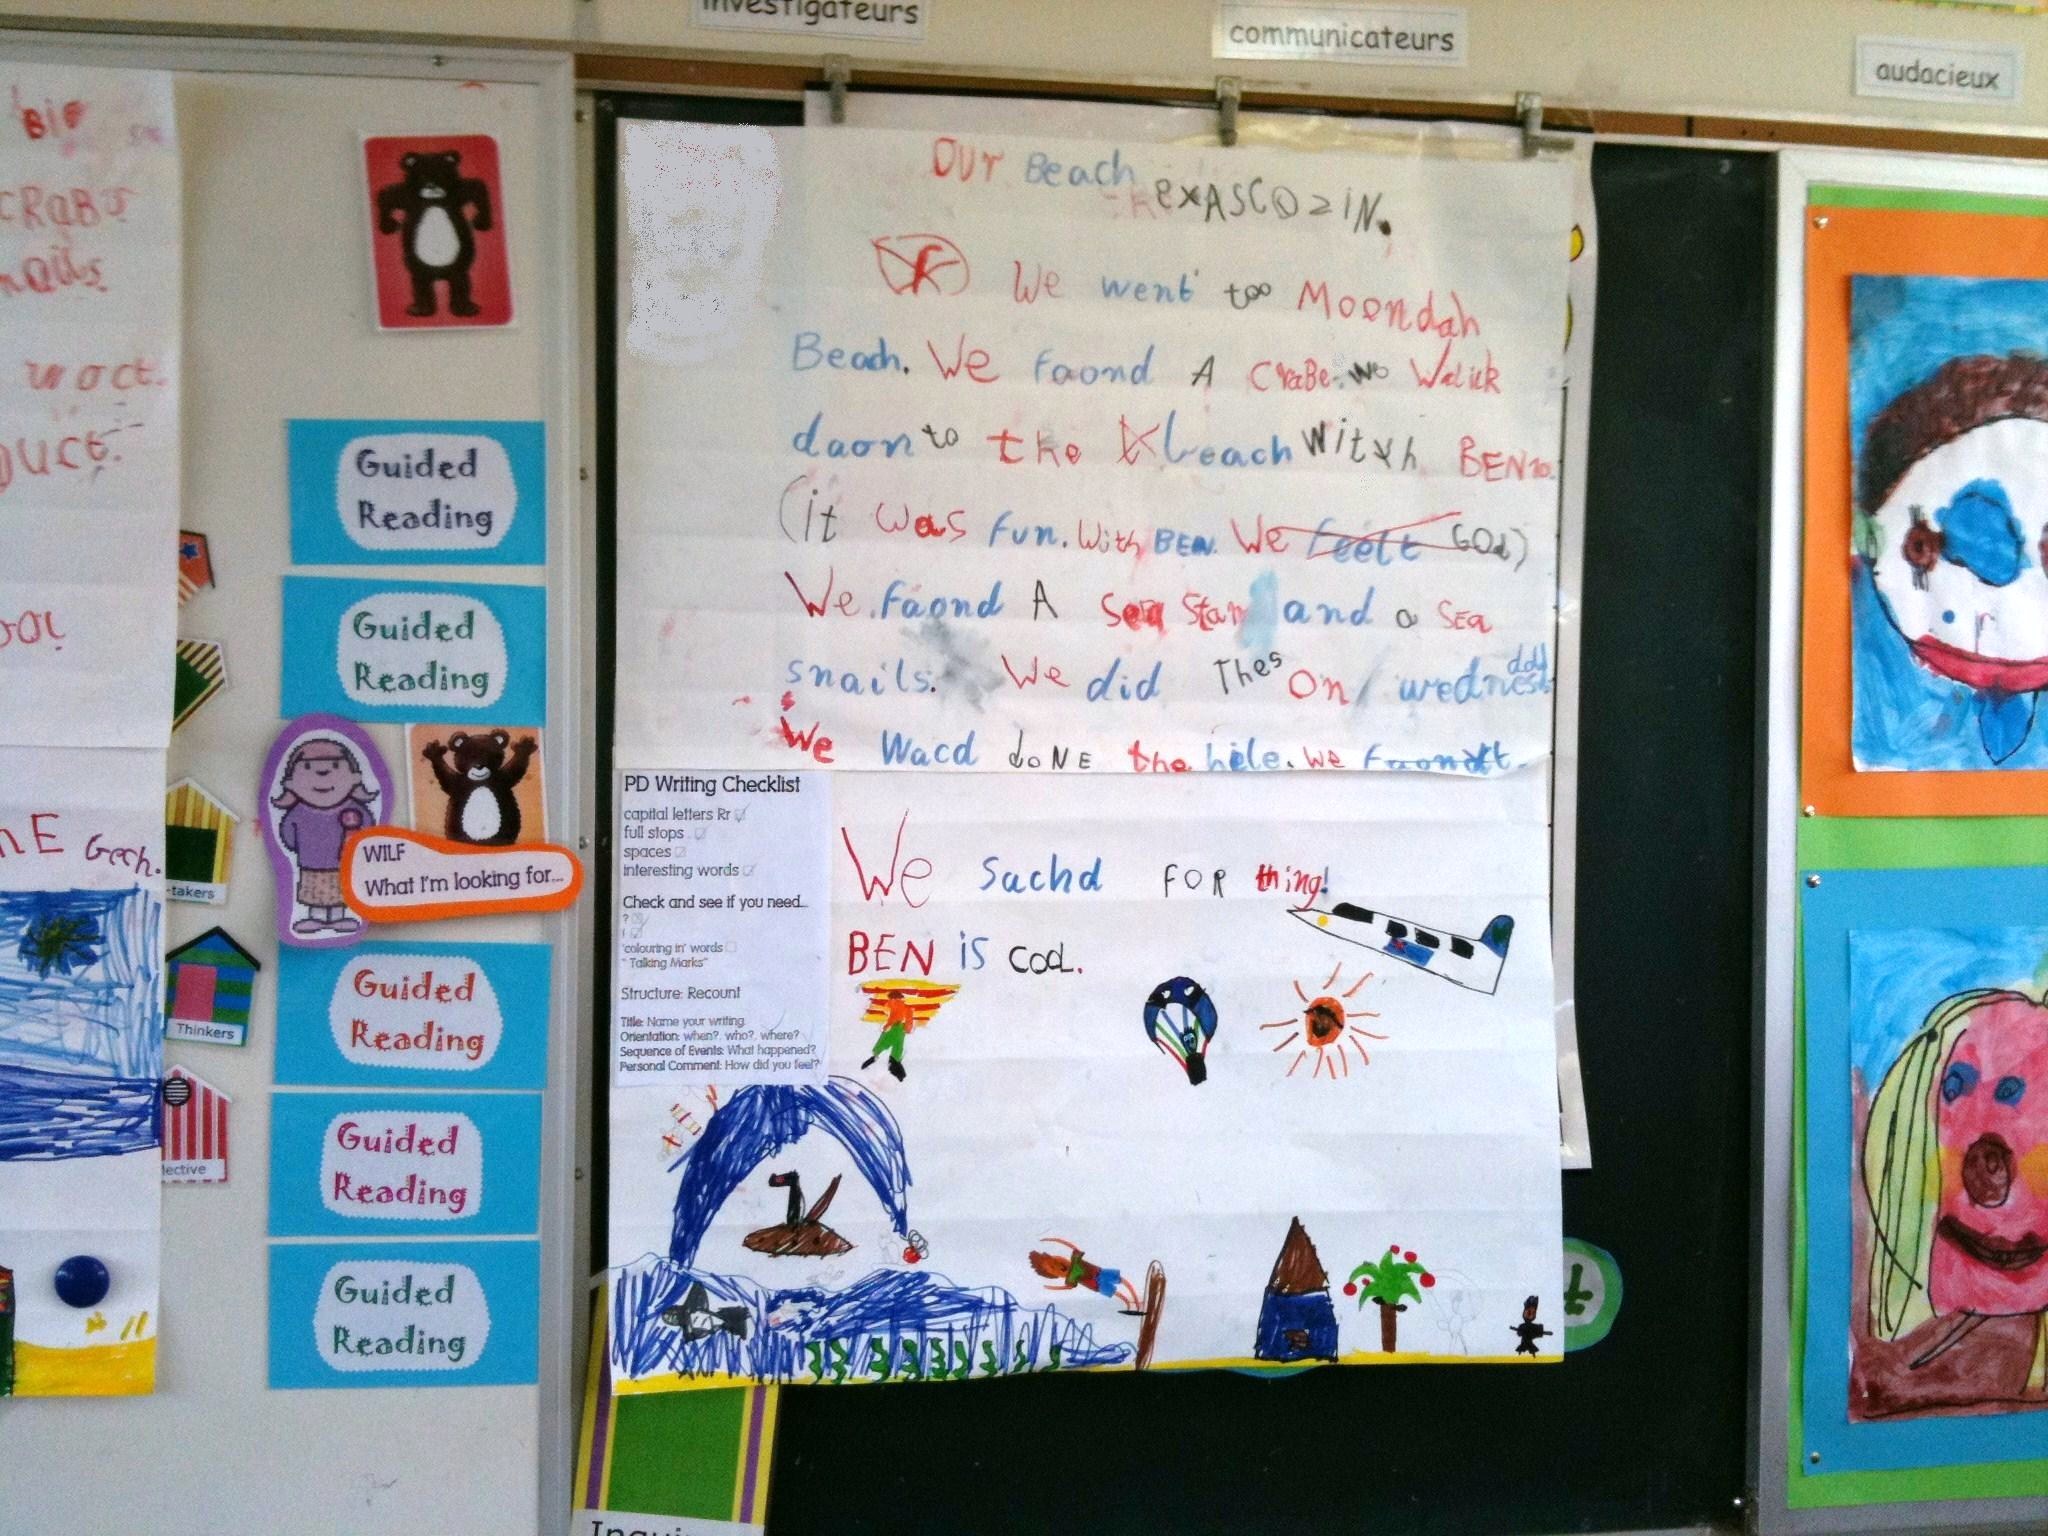 investigateurs
communicateurs
audacieux
BiF
CRaBs
nails.
woct.
Duct.
nE Gech.
Guided
Reading
Guided
Reading
WILF
What I'm looking for...
Guided
Reading
Guided
Reading
Guided
Reading
-takers
Thinkers
lective
OUr Beach
exASCOziN.
We went too Moondah
Beach. We Faond A CraBe. we Walick
daon to the beach Witxh BEN
(it was fun. With BEN. We feelt GOd)
We. Faond A Sea Star and a SEa
snails. We did Thes On wedness
ddd
We Wacd doNE the hele. We Faondt.
PD Writing Checklist
capital letters Rr
full stops
spaces
interesting words
Check and see if you need...
?
!
'colouring in' words
" Talking Marks"
Structure: Recount
Title: Name your writing.
Orientation: when?, who?, where?
Sequence of Events: What happened?
Personal Comment: How did you feel?
We Sachd FOR thing!
BEN is COOL.
Inqui